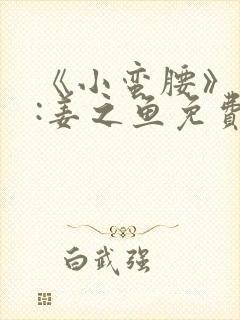 《小蛮腰》
:姜之鱼免費
白武强